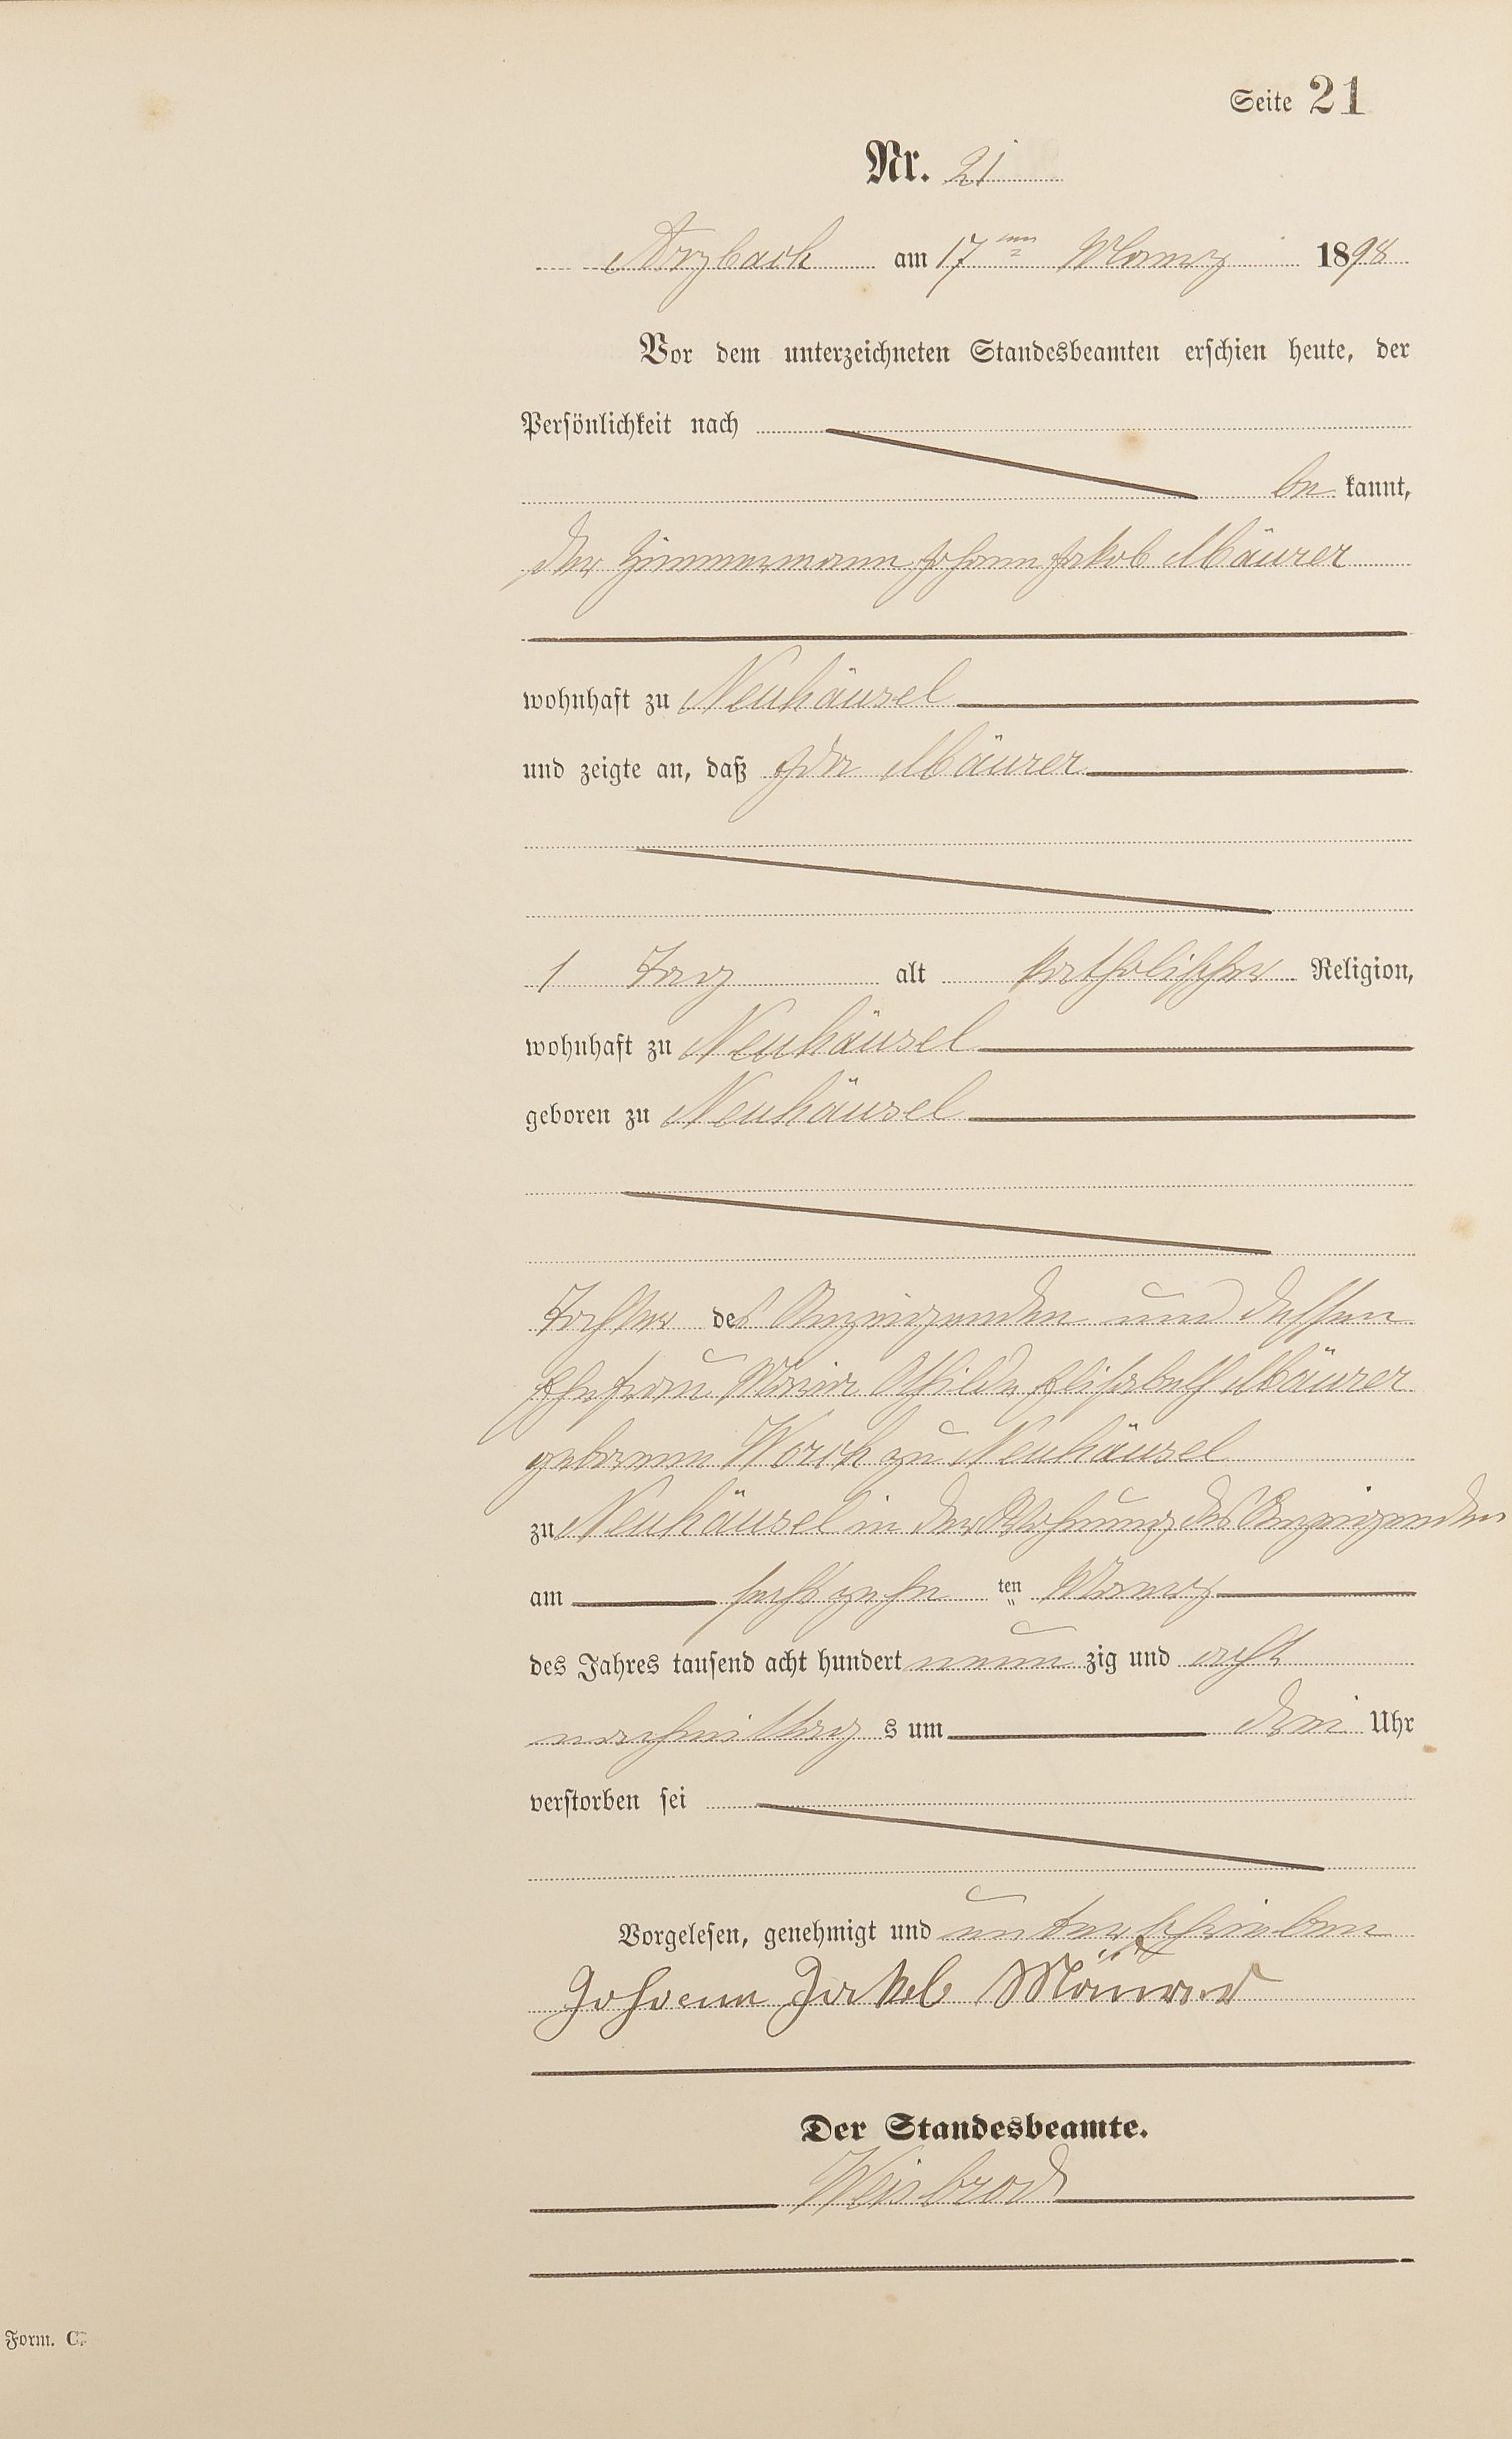 Seite 21
Nr. 21
Arzbach am 17ten Maerz 1898
Vor dem unterzeichneten Standesbeamten erschien heute, der
Persönlichkeit nach
be kannt,
der Zimmermann Johann Jakob Mäurer
wohnhaft zu Neuhäusel
und zeigte an, daß Ida Mäurer
1 Tag alt katholischer Religion,
wohnhaft zu Neuhäusel
geboren zu Neuhäusel
Tochter des Anzeigenden und dessen
Ehefrau Maria Elisabeth Mäurer
geborene zu Neuhäusel
zu Neuhäusel in der Wohnung des Anzeigenden
am sechszehn ten Maerz
des Jahres tausend acht hundert neun zig und acht
nachmittag s um drei Uhr
verstorben sei
Vorgelesen, genehmigt und unterschrieben
Johann Jakob Mäurer
Der Standesbeamte.
Weisbrod
Form. C.